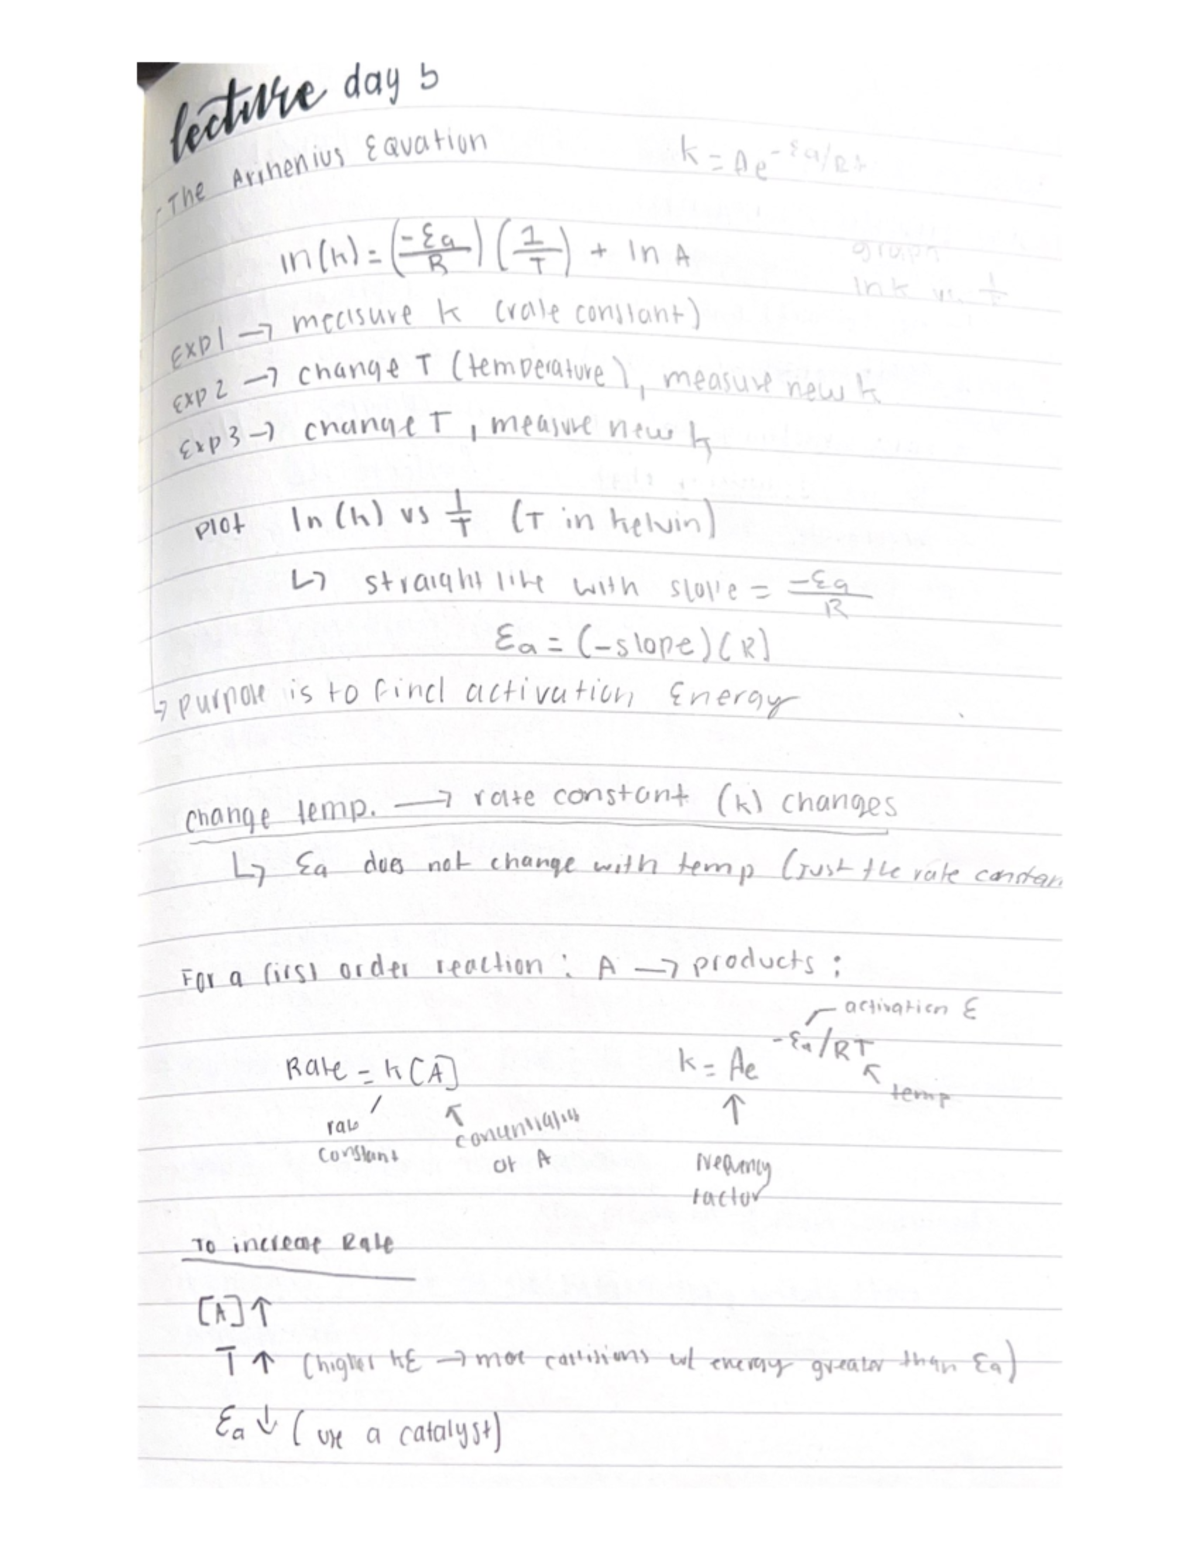 lecture day 5
- The Arrhenius Equation
k = Ae^-Ea/Rt
ln(k) = (-Ea/R) (1/T) + ln A
graph
ln k vs. 1/T
Exp 1 → measure k (rate constant)
Exp 2 → change T (temperature), measure new k
Exp 3 → change T, measure new k
Plot ln(k) vs 1/T (T in kelvin)
↳ straight line with slope = -Ea/R
Ea = (-slope)(R)
↳ purpose is to find activation Energy
change temp. → rate constant (k) changes
↳ Ea does not change with temp (just the rate constan
For a first order reaction : A → products :
activation E
Rate = k[A]
k = Ae^-Ea/RT
temp
rate
constant
concentration
of A
frequency
factor
To increase Rate
[A] ↑
T ↑ (higher kE → more collisions w/ energy greater than Ea)
Ea ↓ (use a catalyst)